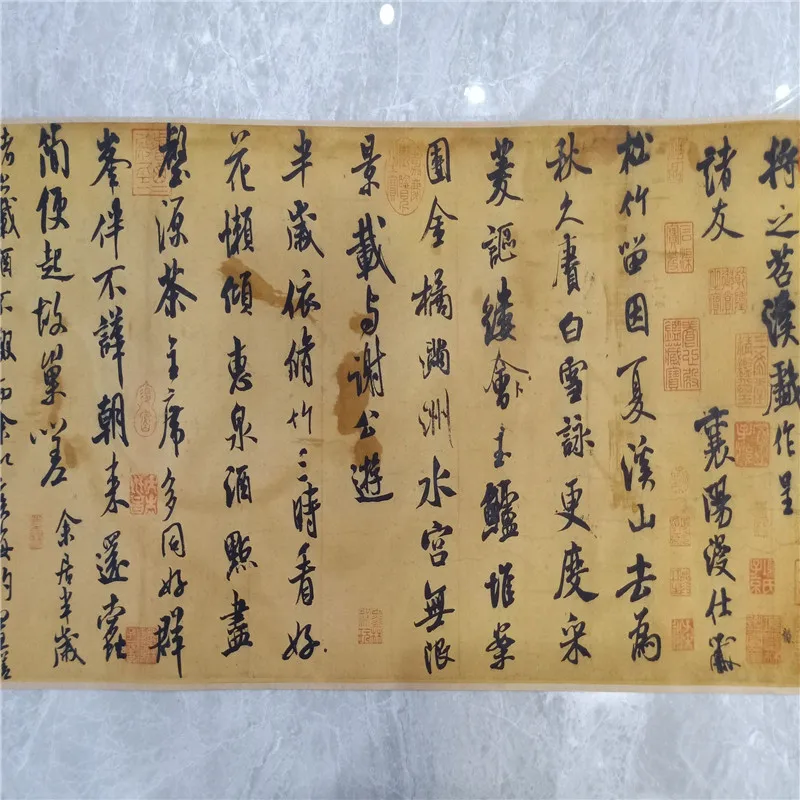 將之苕溪戲作呈
諸友 襄陽漫仕黻
松竹留因夏溪山去為
秋久賡白雪詠更度采
菱謳縷會玉鱸堆案
團金橘滿洲水宮無限
景載与謝公遊
半歲依脩竹三時看好
花懶傾惠泉酒點盡
壑源茶主席多同好群
峯伴不譁朝來還蠹
簡便起故巢嗟 余居半歲
諸公載酒不輟而余以疾每約置膳